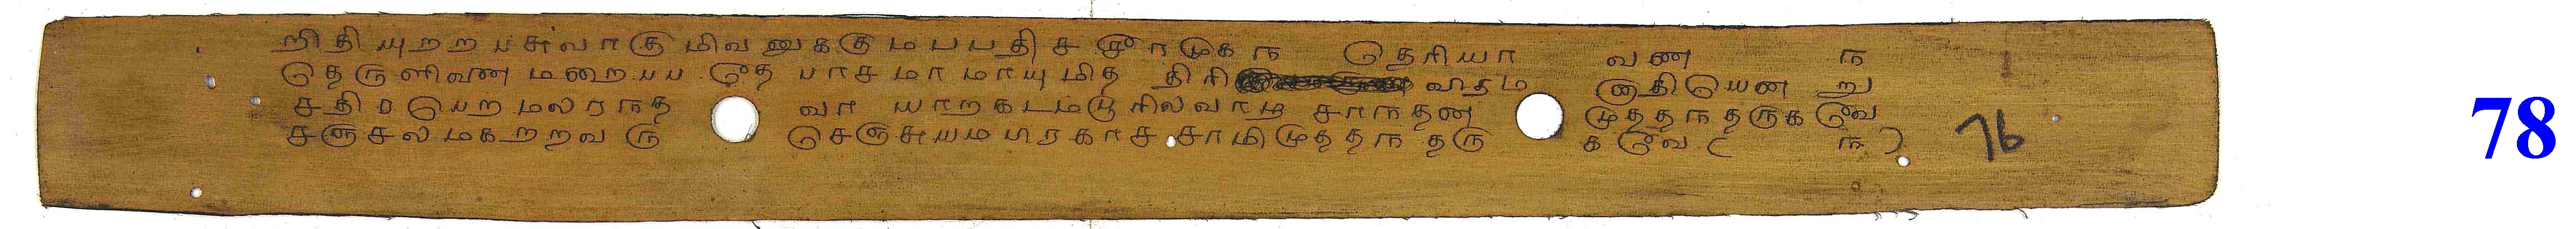 றிதி யுறற பசுவாகு மிவனுககு மபபதிச சூாமுக ந தெரியா வண ந
தெருளிவண மறைபப தேத பாசமாமாயுமித திரி விதம னுதியென று
சதிர பெற மலரநத வா யாறகடமபூரிலவாழ சாநதண முததநதருகவே
சஞசலமகறறவ ரு செஞசுயமபிரகாச சாமிமுததந தரு கவே ( ந ) 76
78